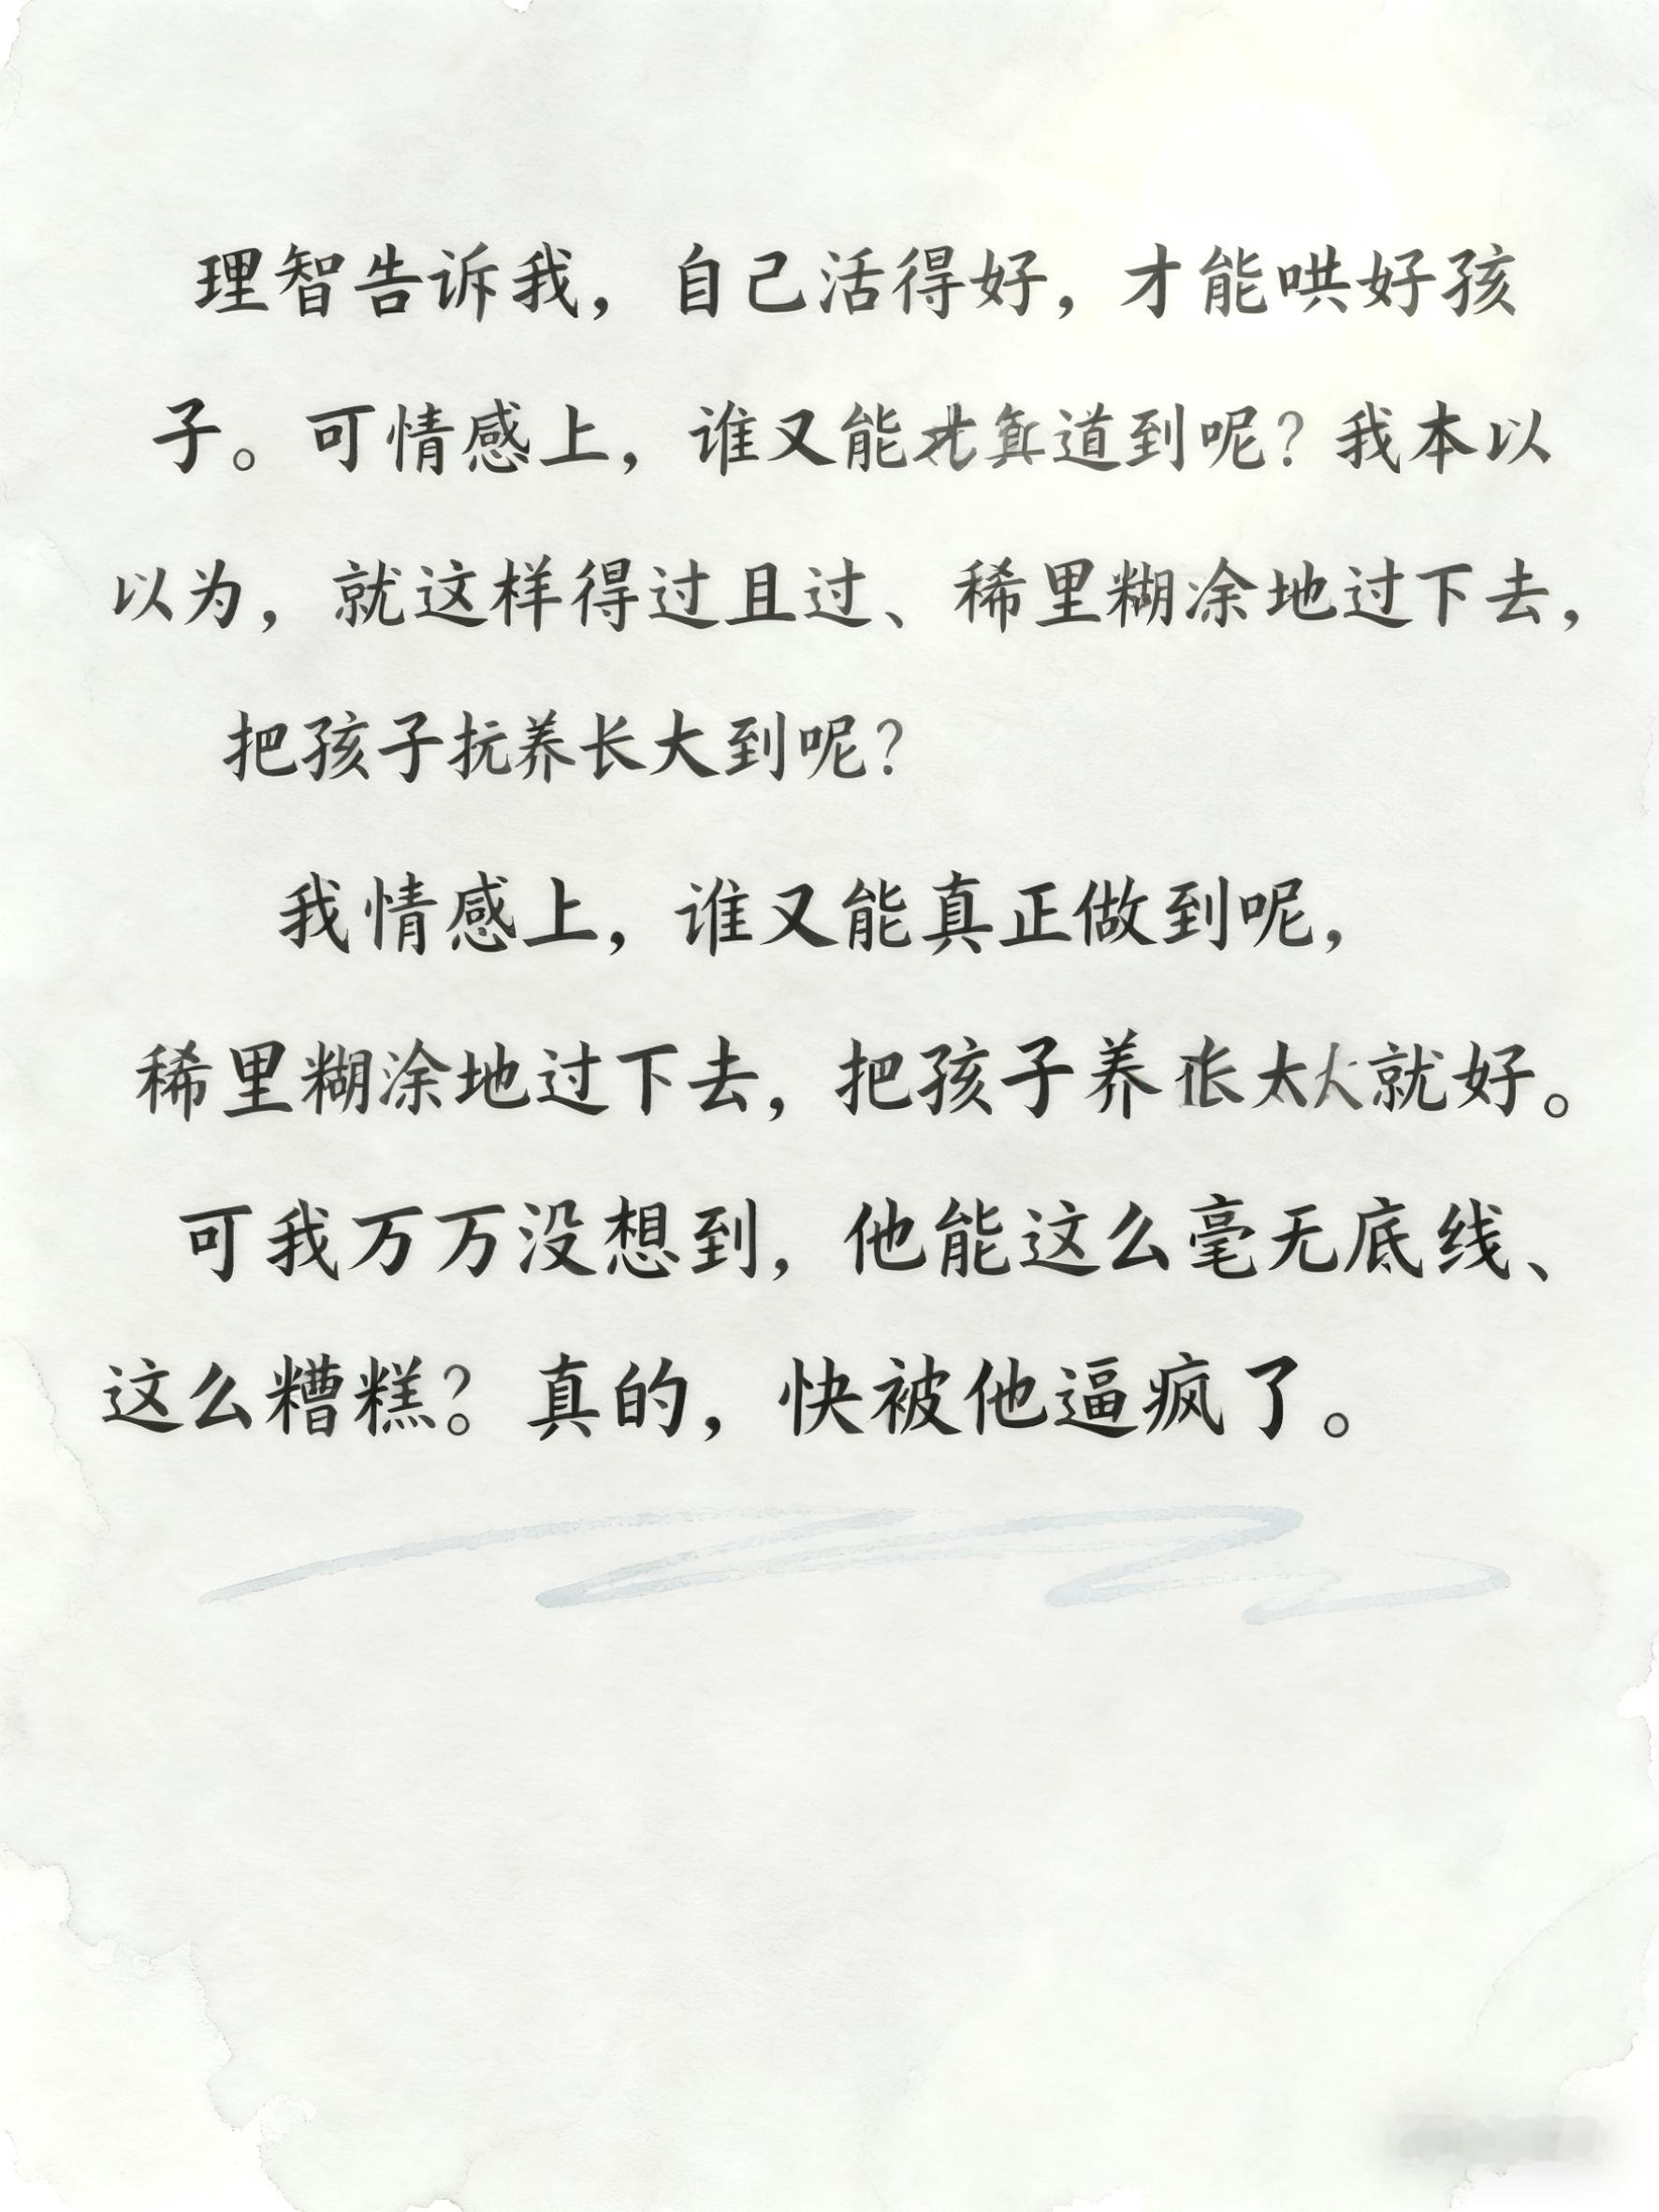 理智告诉我，自己活得好，才能哄好孩
子。可情感上，谁又能道到呢？我本以
以为，就这样得过且过、稀里糊涂地过下去，
把孩子抚养长大到呢？
我情感上，谁又能真正做到呢，
稀里糊涂地过下去，把孩子养大就好。
可我万万没想到，他能这么毫无底线、
这么糟糕？。真的，快被他逼疯了。